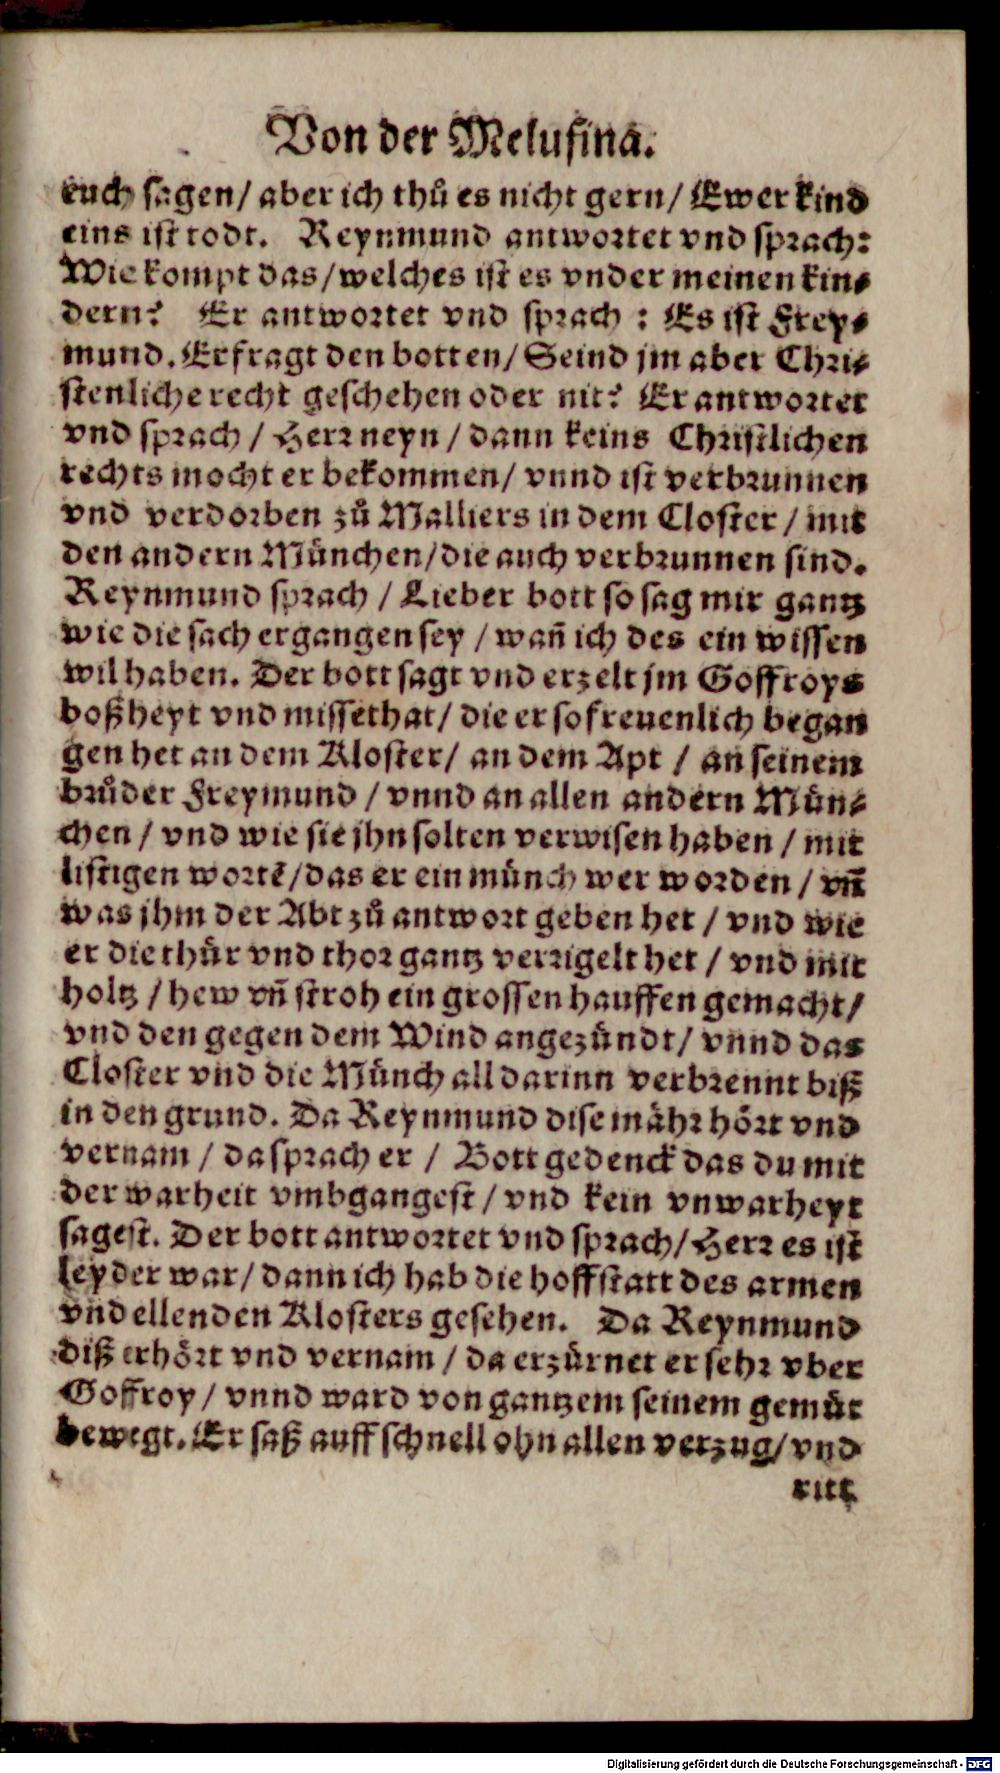 Von der Melusina.
euch sagen/ aber ich thů es nicht gern/ Ewer kind
eins ist todt. Reynmund antwortet vnd sprach:
Wie kompt das/welches ist es vnder meinen kin⸗
dern? Er antwortet vnd sprach : Es ist Frey⸗
mund. Er fragt den botten/ Seind jm aber Chri⸗
stenliche recht geschehen oder nit? Er antwortet
vnd sprach / Herr neyn / dann keins Christlichen
rechts mocht er bekommen/ vnnd ist verbrunnen
vnd verdorben zů Malliers in dem Closter / mit
den andern München/die auch verbrunnen sind.
Reynmund sprach / Lieber bott so sag mir gantz
wie die sach ergangen sey / wañ ich des ein wissen
wil haben. Der bott sagt vnd erzelt jm Goffroys
boßheyt vnd missethat/ die er so freuenlich began
gen het an dem Kloster/ an dem Apt / an seinem
brůder Freymund / vnnd an allen andern Mün⸗
chen / vnd wie sie jhn solten verwisen haben / mit
listigen wortẽ/das er ein münch wer worden / vñ
was jhm der Abt zů antwort geben het / vnd wie
er die thür vnd thor gantz verrigelt het / vnd mit
holtz / hew vñ stroh ein grossen hauffen gemacht/
vnd den gegen dem Wind angezündt/ vnnd das
Closter vnd die Münch all darinn verbrennt biß
in den grund. Da Reynmund dise mähr hört vnd
vernam / da sprach er / Bott gedenck das du mit
der warheit vmbgangest / vnd kein vnwarheyt
sagest. Der bott antwortet vnd sprach/ Herr es ist
leyder war/ dann ich hab die hoffstatt des armen
vnd ellenden Klosters gesehen. Da Reynmund
diß erhört vnd vernam / da erzürnet er sehr vber
Goffroy / vnnd ward von gantzem seinem gemüt
bewegt. Er saß auff schnell ohn allen verzug/ vnd
ritt
Digitalisierung gefördert durch die Deutsche Forschungsgemeinschaft - DFG